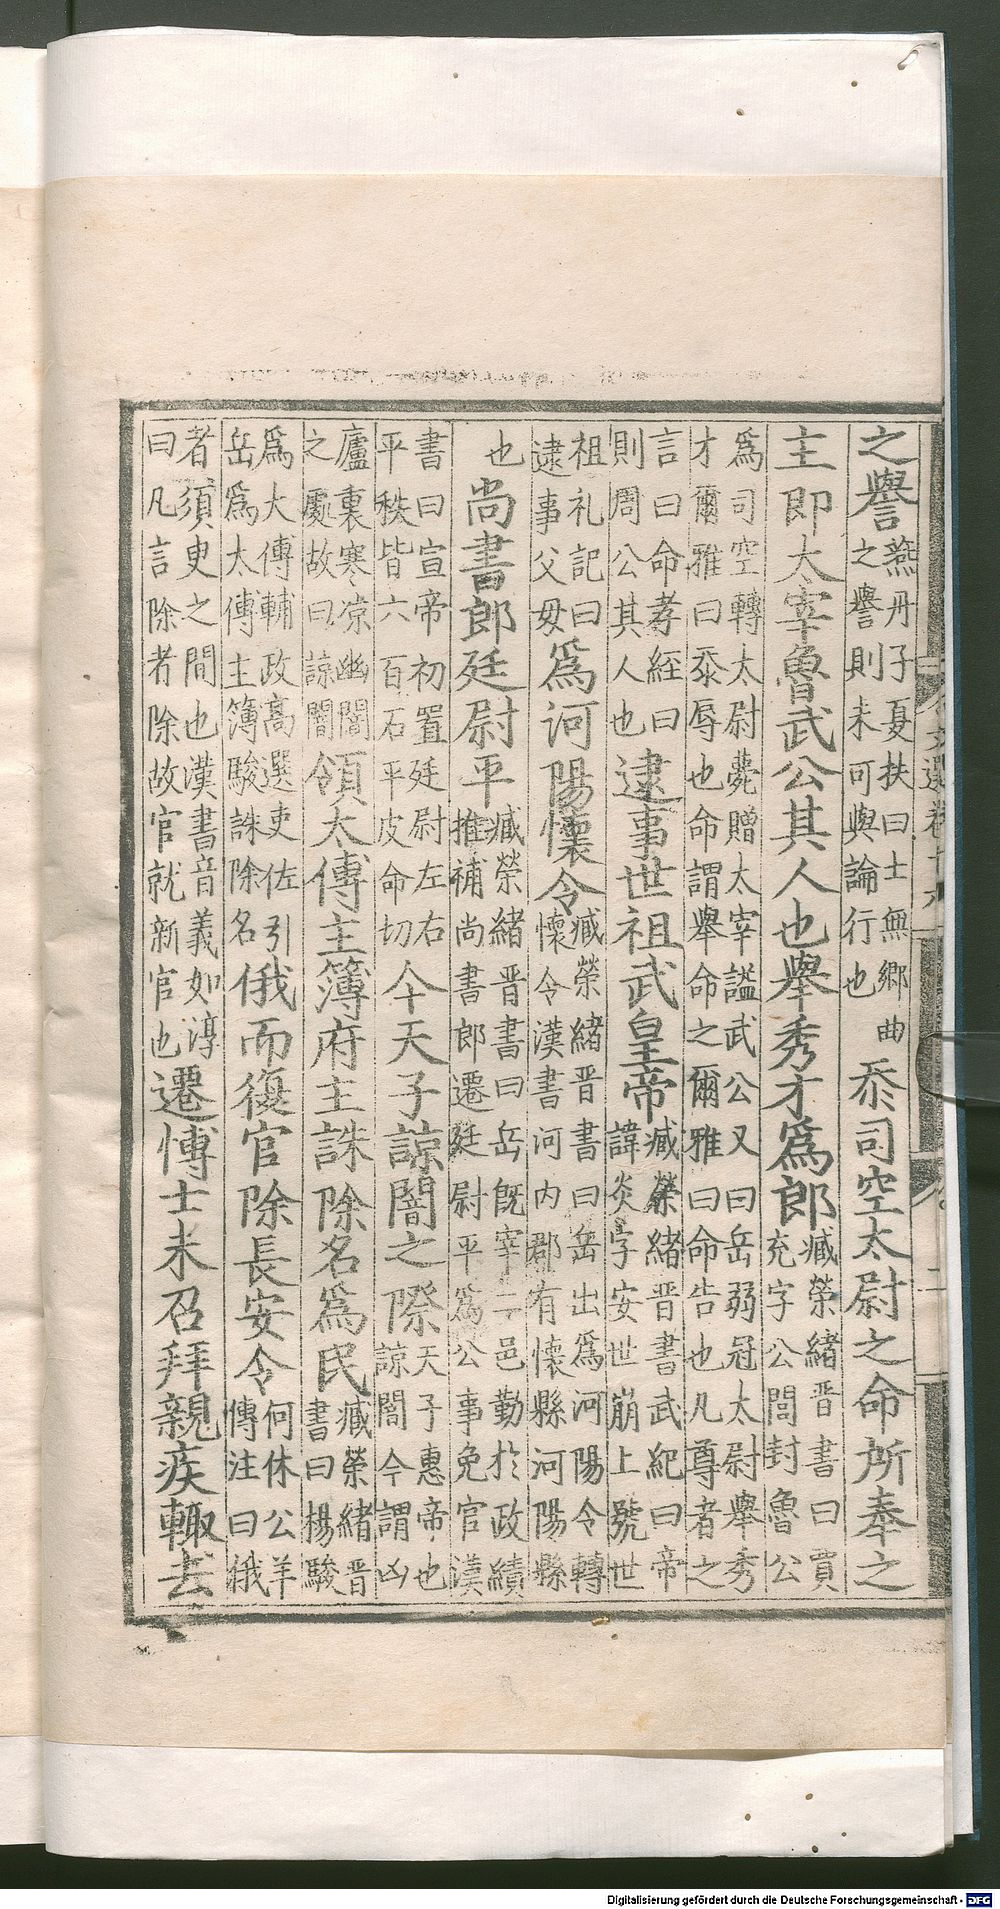 之譽燕丹子夏扶曰士無鄉曲之譽則未可與論行也忝司空太尉之命所奉之
主即太宰魯武公其人也舉秀才爲郎臧榮緒晋書曰賈充字公閭封魯公
爲司空轉太尉薨贈太宰謚武公又曰岳弱冠太尉舉秀才爾雅曰忝辱也命謂舉命之爾雅曰命告也凡尊者之
言曰命孝經曰則周公其人也逮事世祖武皇帝臧榮緒晋書武紀曰帝諱炎字安世崩上號世
祖礼記曰逮事父毋爲河陽懷令臧榮緒晋書曰岳出爲河陽令轉懷令漢書河内郡有懷縣河陽縣
也尚書郎廷尉平臧榮緒晋書曰岳旣宰二邑勤於政績推補尚書郎遷廷尉平爲公事免官漢
書曰宣帝初置廷尉左右平秩皆六百石平皮命切今天子諒闇之際天子惠帝也諒闇今謂凶
廬裏寒凉幽闇之處故曰諒闇領太傅主簿府主誅除名爲民臧榮緒晋書曰楊駿
爲太傅輔政高選吏佐引岳爲太傅主簿駿誅除名俄而復官除長安令何休公羊傳注曰俄
者須臾之間也漢書音義如淳曰凡言除者除故官就新官也遷博士未召拜親疾輙去
文選卷十六
二
Digitalisierung gefördert durch die Deutsche Forschungsgemeinschaft - DFG